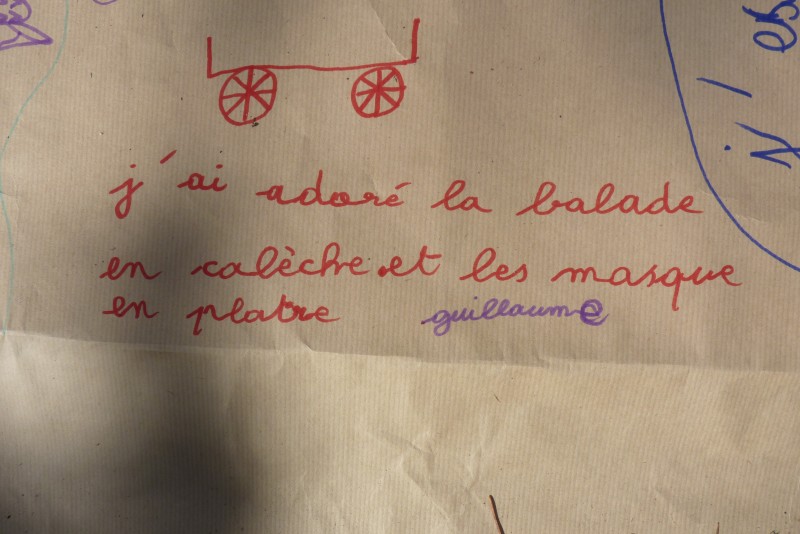 j'ai adoré la balade
en calèche.et les masque
en platre guillaume